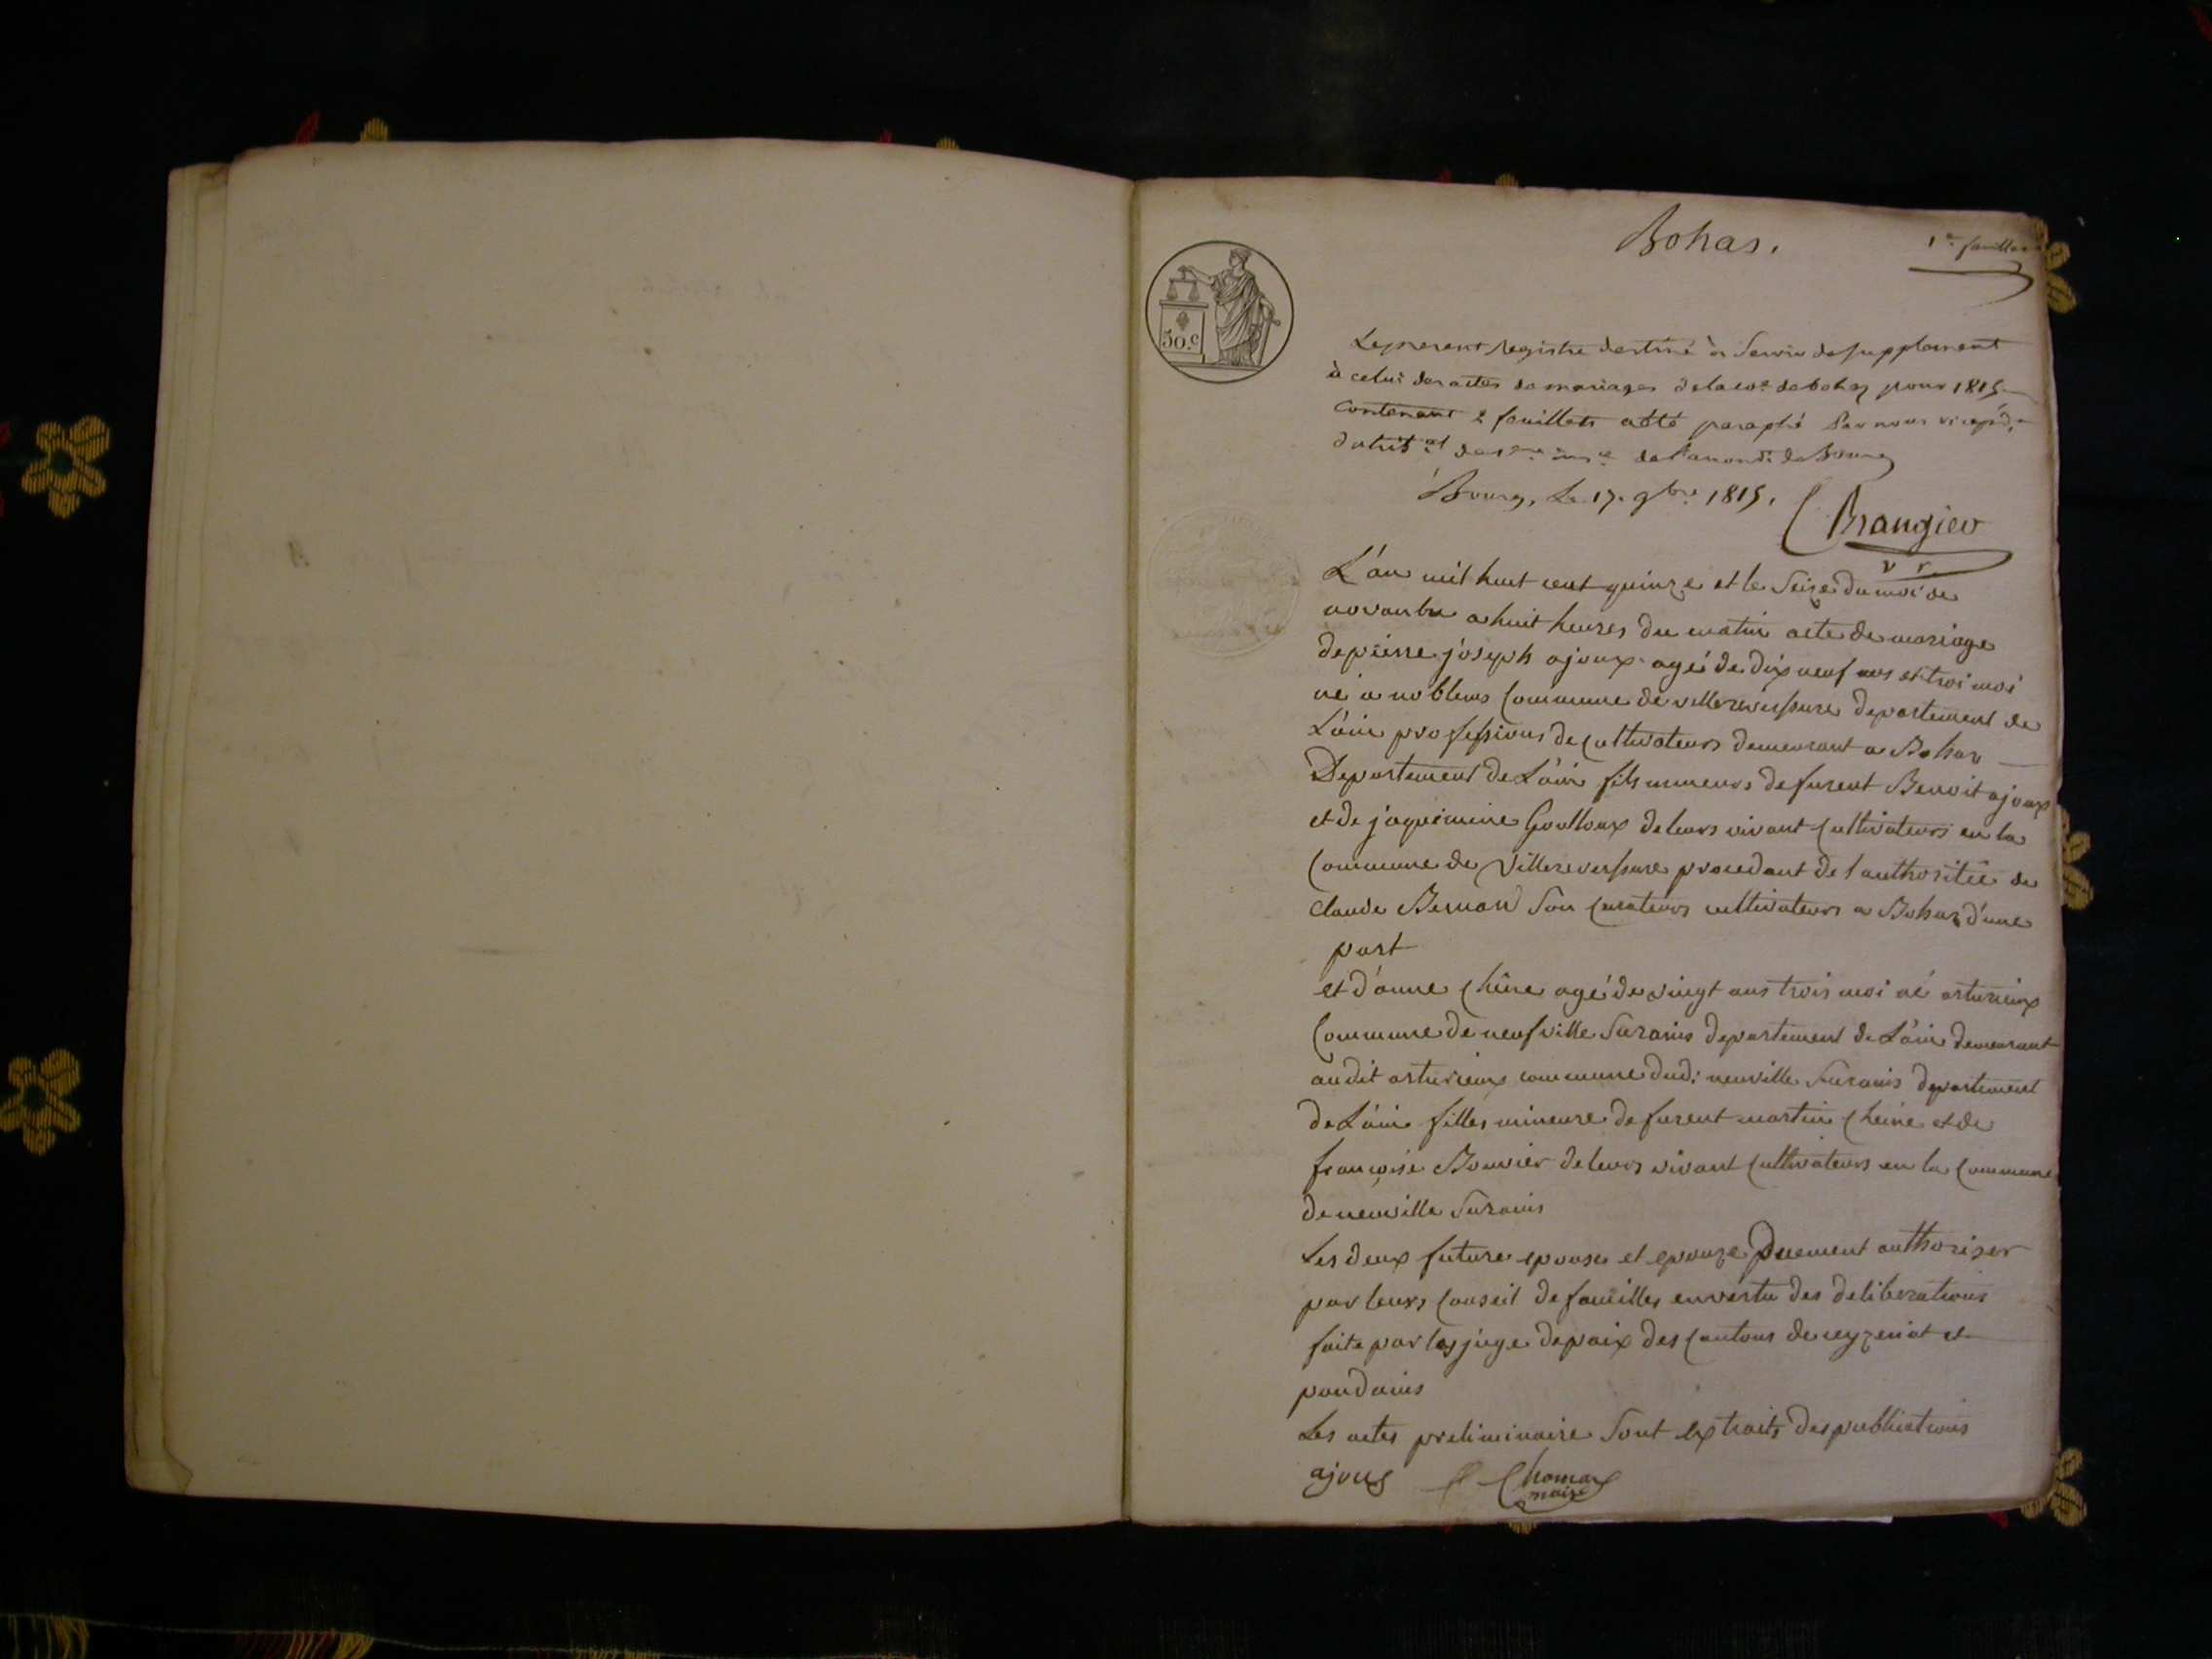 Bohas.
1er feuillet
50.c
Le present registre destiné à servir de supplement
à celui des actes de mariages de la coe de bohas pour 1815
contenant 2 feuillets a été paraphé par nous
de l'arrondt de Bourg
Bourg, le 17 9bre 1815.
Brangier
L'an mil huit cent quinze et le seize du moi de
novanbre a huit heures du matin acte de mariage
de pierre joseph ajoux agé de dix neuf ans et troi moi
né a noblens commune de villereversure departement de
L'ain professions de cultivateurs demeurant a Bohas
Departement de L'ain fils mineurs de furent Benoit ajoux
et de jaquemine Goulloux de leurs vivant cultivateurs en la
commune de villereversure procedant de l'authoritée de
claude Bernard son curateurs cultivateurs a Bohas d'une
part
et d'anne Chêne agé de vingt ans trois moi né arturieux
commune de neufville surains departement de L'ain demeurant
audit arturieux commune dud: neuville surains departement
de L'ain filles mineure de furent martin Cheine et de
françoise Bouvier de leurs vivant cultivateurs en la commune
de neuville surains
Les deux future epouse et epouze Duement authoriser
par leurs conseil de familles en vertu des deliberations
faite par les juge de paix des cantons de ceyzeriat et
pondains
Les actes preliminaire sont extraits des publications
ajoux Chomas
maire